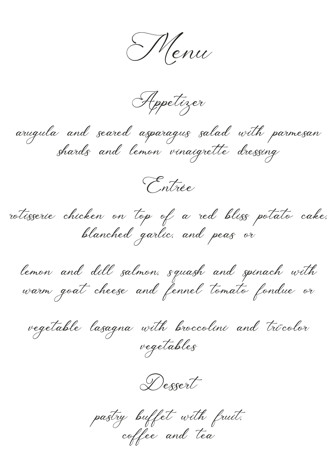 Menu
Appetizer
arugula and seared asparagus salad with parmesan
shards and lemon vinaigrette dressing
Entrée
rotisserie chicken on top of a red bliss potato cake,
blanched garlic, and peas or
lemon and dill salmon, squash and spinach with
warm goat cheese and fennel tomato fondue or
vegetable lasagna with broccolini and tricolor
vegetables
Dessert
pastry buffet with fruit,
coffee and tea